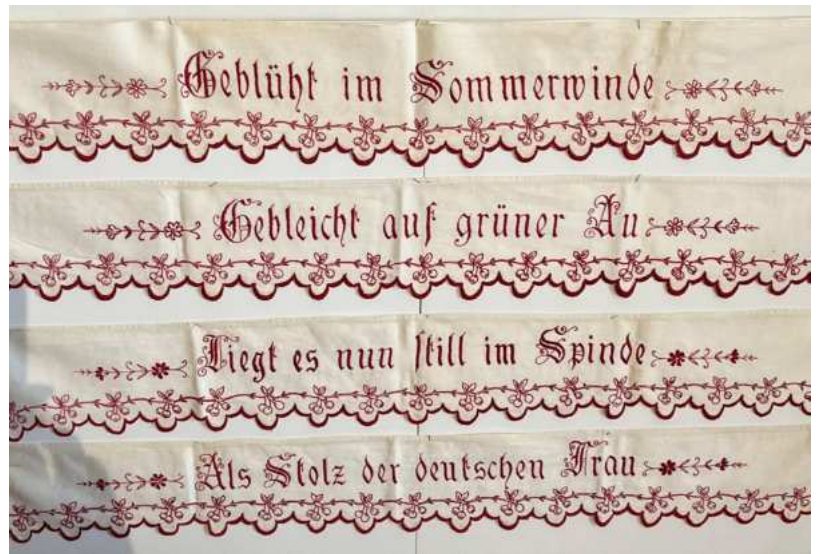 Geblüht im Sommerwinde
Gebleicht auf grüner Au
Liegt es nun still im Spinde
Als Stolz der deutschen Frau